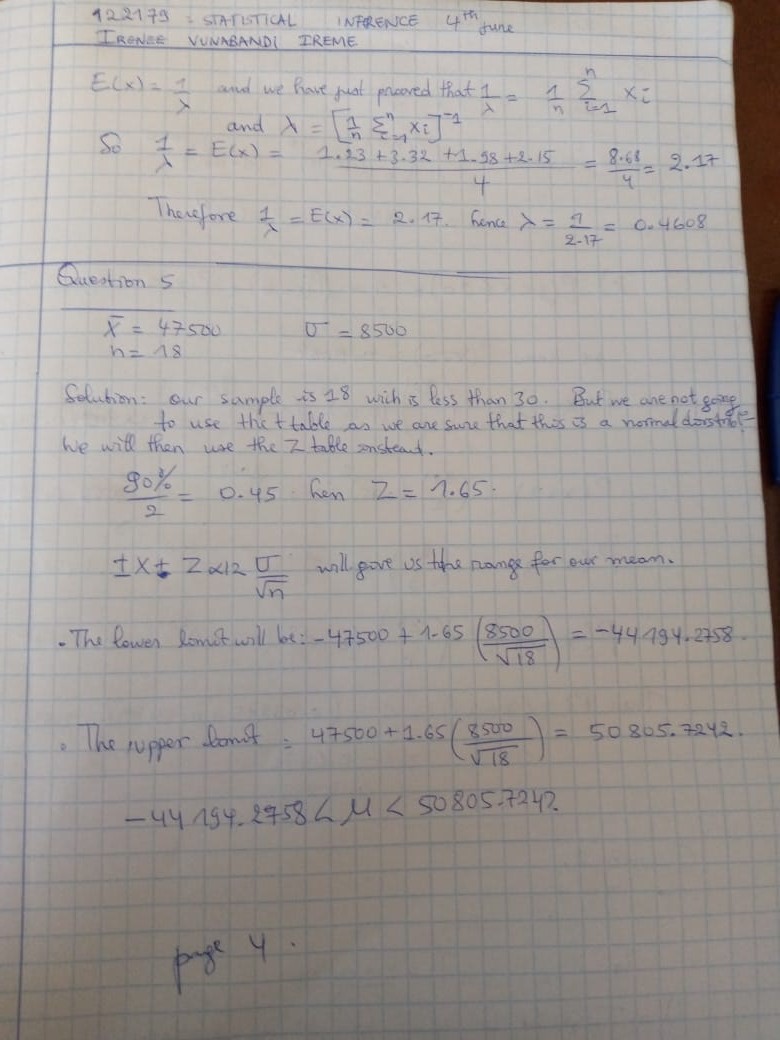 122179 : STATISTICAL INFERENCE 4th June
IRENEE VUNABANDI IREME
E(x) = 1/λ and we have just prooved that 1/λ = 1/n Σ_{i=1}^{n} xi
and λ = [1/n Σ_{i=1}^{n} xi]^-1
So 1/λ = E(x) = (1.23 + 3.32 + 1.98 + 2.15)/4 = 8.68/4 = 2.17
Therefore 1/λ = E(x) = 2.17. hence λ = 1/2.17 = 0.4608
Question 5
x̄ = 47500 σ = 8500
n = 18
Solution: our sample is 18 wich is less than 30. But we are not going
to use the t table as we are sure that this is a normal
We will then use the Z table instead.
90%/2 = 0.45 hen Z = 1.65.
± X ± Z α/2 σ/√n will give us the range for our mean.
. The lower limit will be: -47500 + 1.65 (8500/√18) = -44194.2758.
. The upper limit = 47500 + 1.65 (8500/√18) = 50805.7242.
-44194.2758 < M < 50805.7242.
page 4.